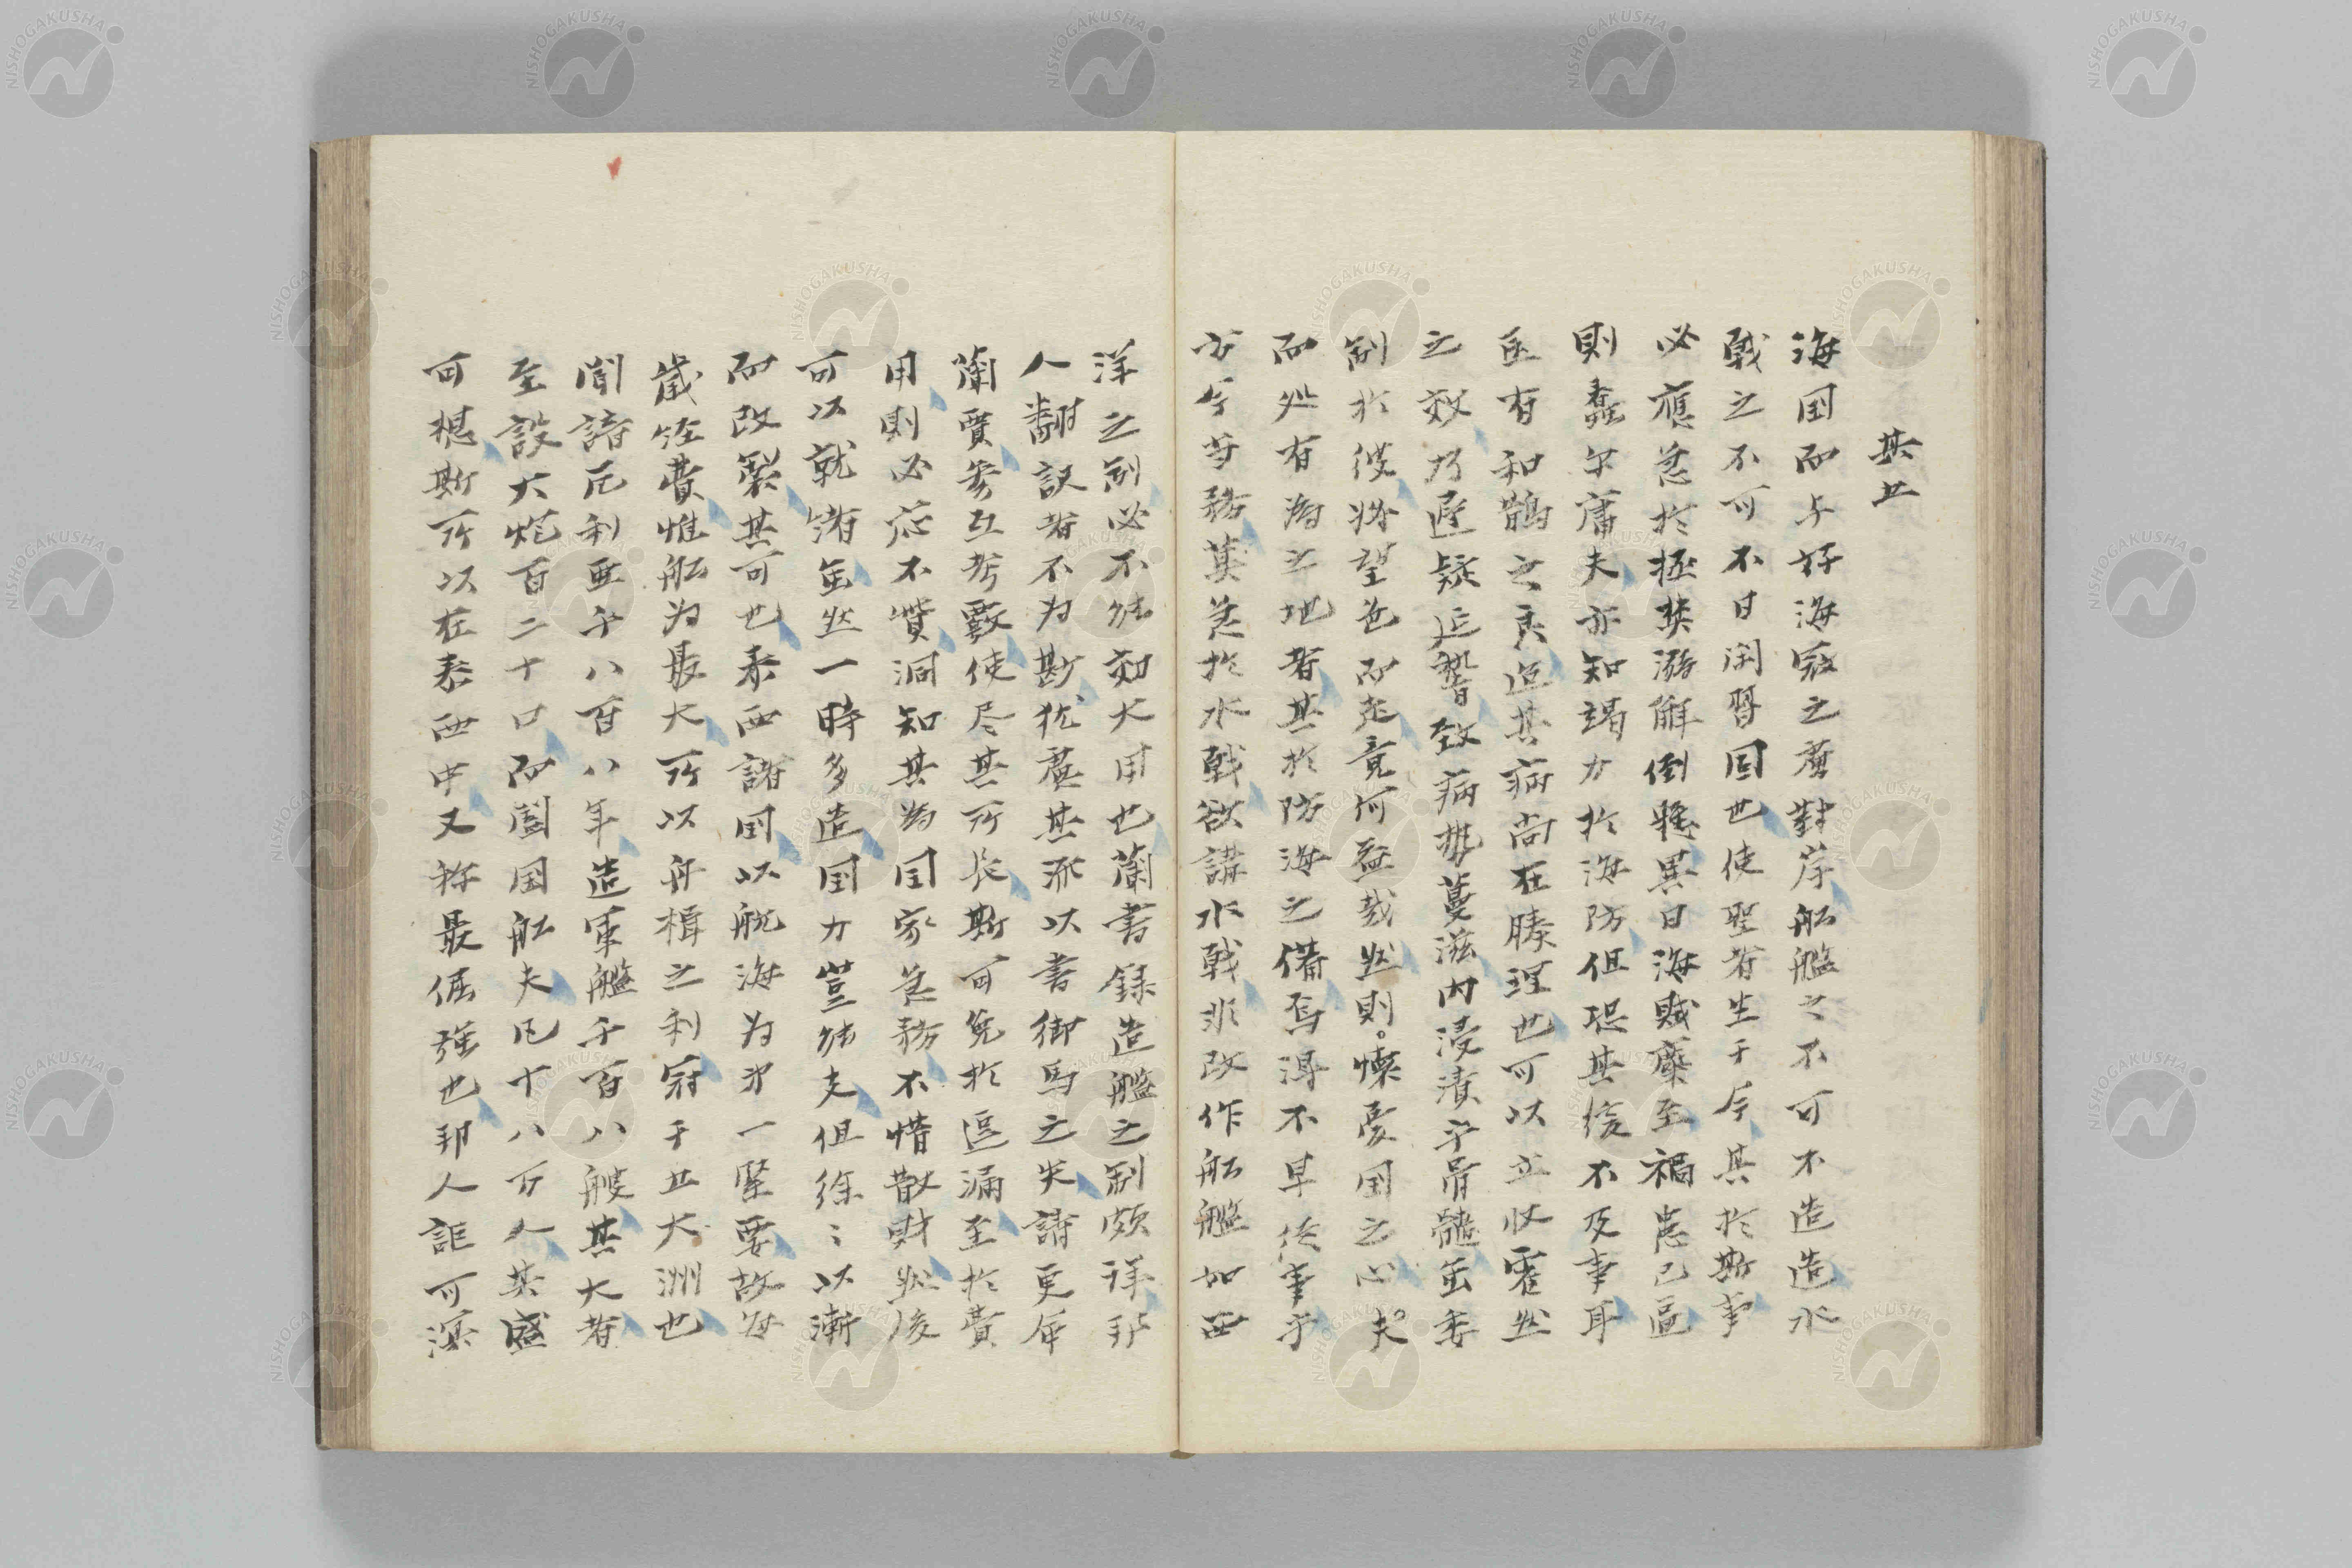 其五
海国而与好海寇之虜對岸舩艦之不可不造造水
戰之不可不日閑習固也使聖者生于今其於斯事
必應急於拯焚溺解倒懸異日海賊麋至禍患已逼
則蠢尔庸夫亦知竭力於海防但恐其緩不及事耳
医有和鵲之良迨其病尚在腠理也可以立收霍然
之效乃遅疑延暫致病勢蔓滋内浸漬乎骨髓缶委
制於彼將望色而走竟何益哉然則懐憂国之心夫
而処有為之地者其於防海之備焉得不早従事乎
方今当務莫急於水戰欲講水戰非改作舩艦如西
洋之制必不能効大用也蘭書録造艦之制頗詳邦
人翻訳者不为尠猶蓋其流以書御馬之失請更俾
蘭賈参互考覈使尽其所長斯可免於逗漏至於費
用則必応不貲洞知其為国家急務不惜散財然後
可以就緒缶然一時多造国力豈能支但徐々以漸
而改製其可也泰西諸国以航海为第一緊要故每
歳経費惟舩为最大所以舟楫之利冠于五大洲也
聞諳厄利亜千八百八年造軍艦千百八艘其大者
至設大炮百二十口而闔国舩夫凡十八万人其盛
可想斯所以在泰西中又称最倔強也邦人詎可漠